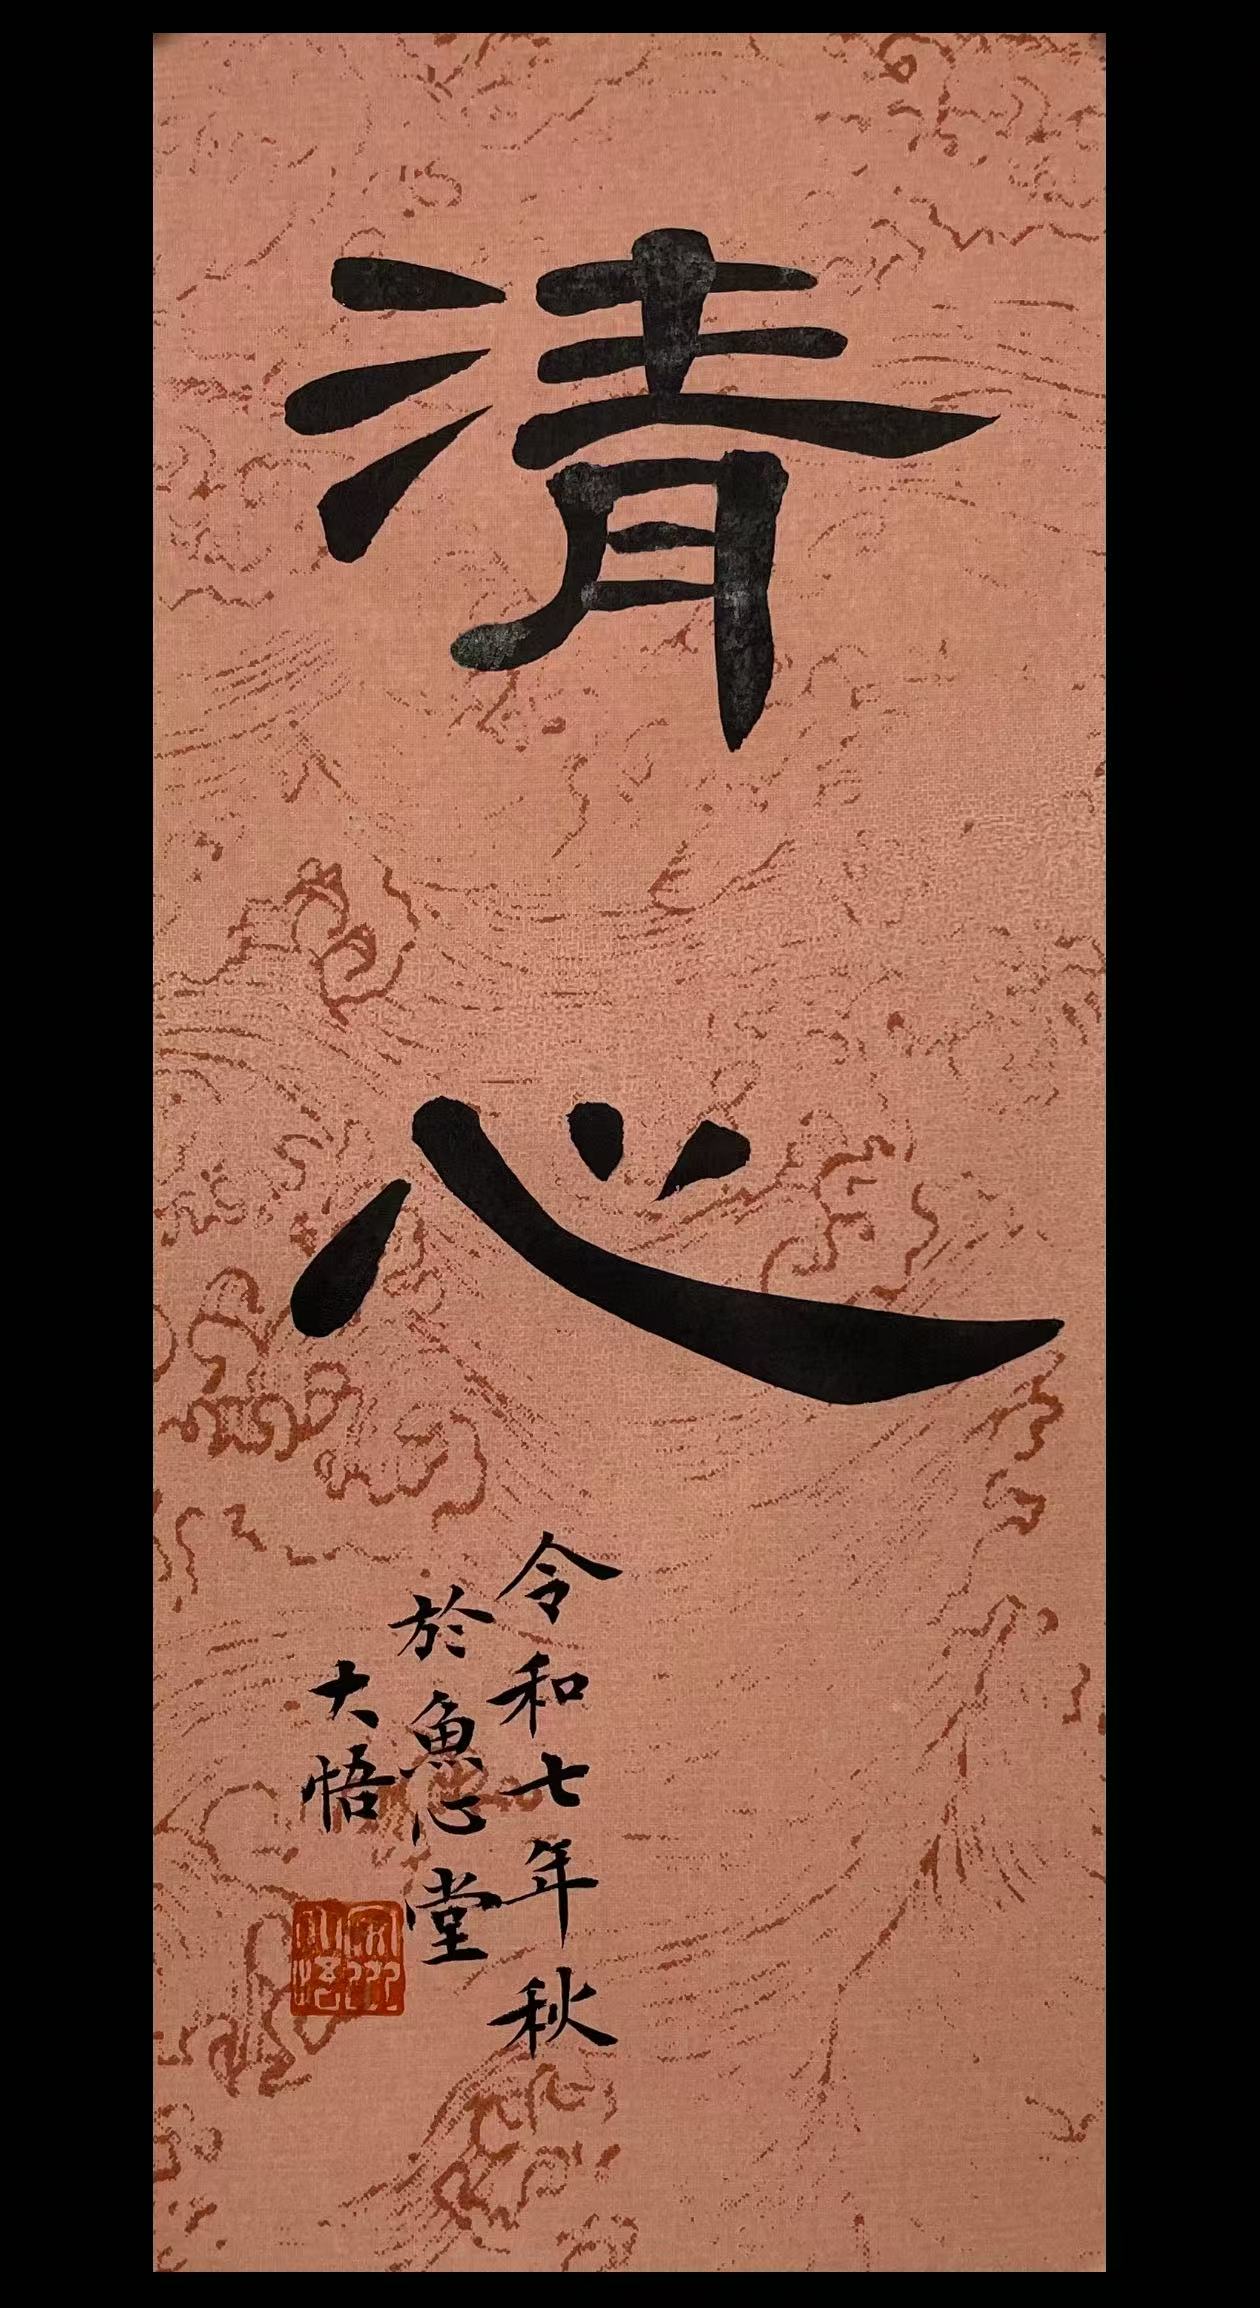 清心
令和七年秋
於魚心堂
大悟